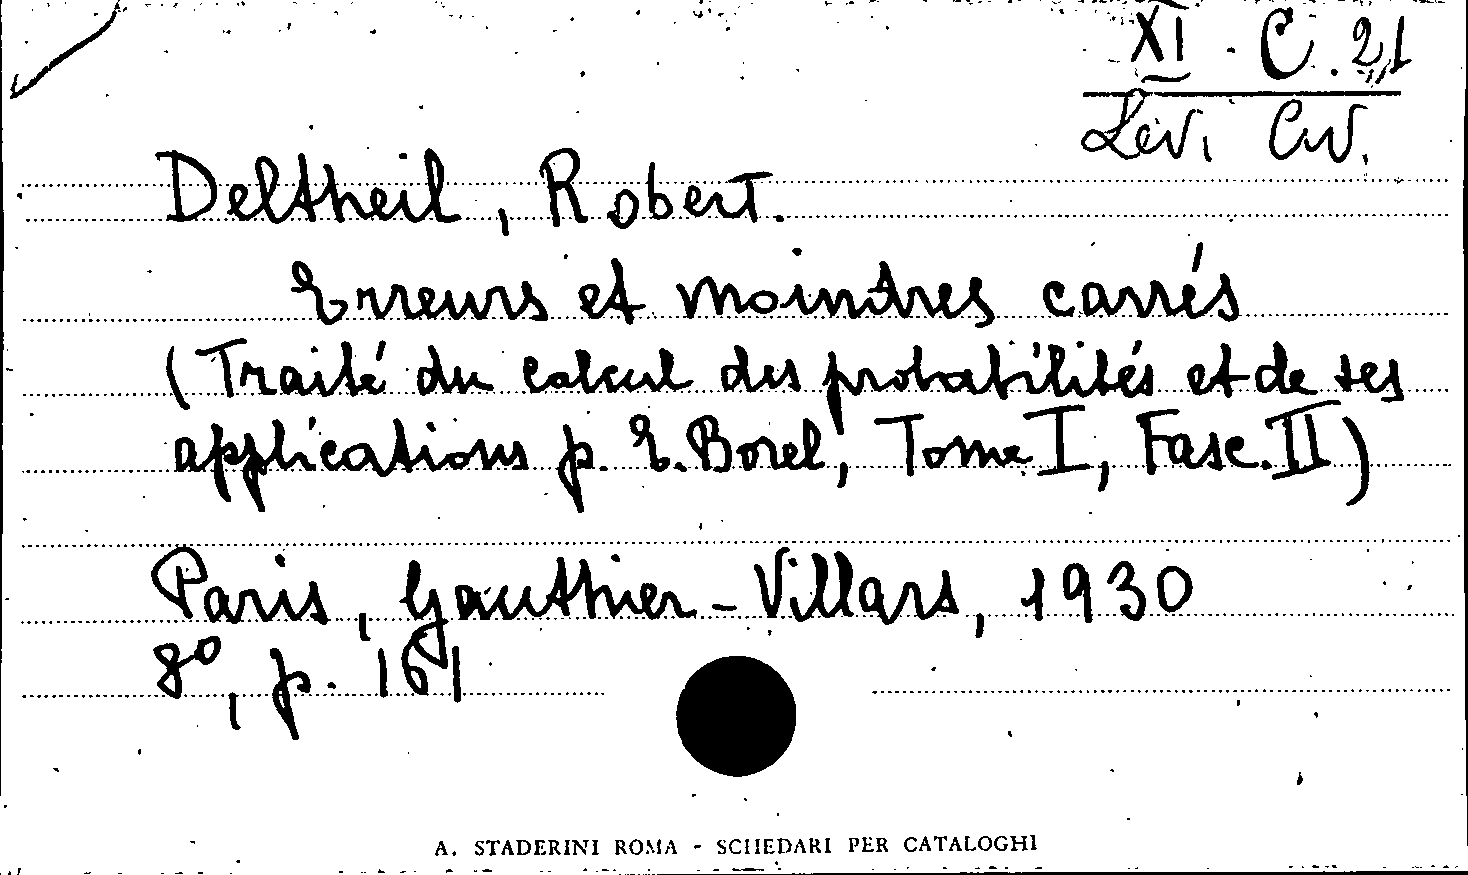 XI. C. 21
Levi Civ.
Deltheil, Robert.
Erreurs et moindres carrés
(Traité du calcul des probabilités et de ses
applications p. E. Borel, Tome I, Fasc. II)
Paris, Gauthier-Villars, 1930
8º, p. 161
A. STADERINI ROMA - SCHEDARI PER CATALOGHI